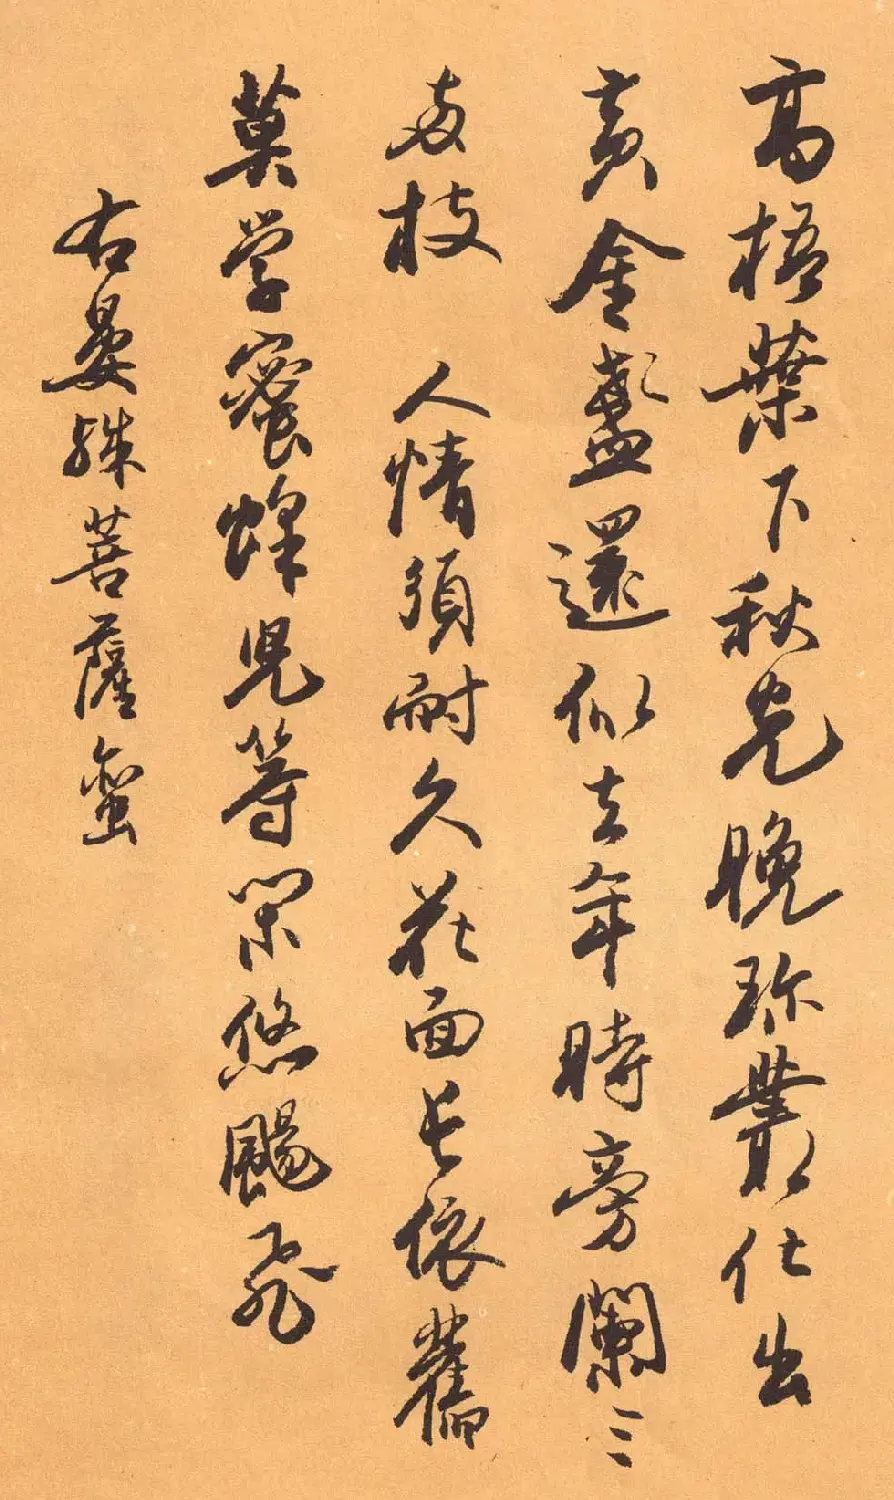 高梧葉下秋光晚珍叢化出
黄金盞還似去年時旁闌三
两枝 人情須耐久花面長依舊
莫学蜜蜂児等閑悠颺飛
右晏殊菩薩蠻